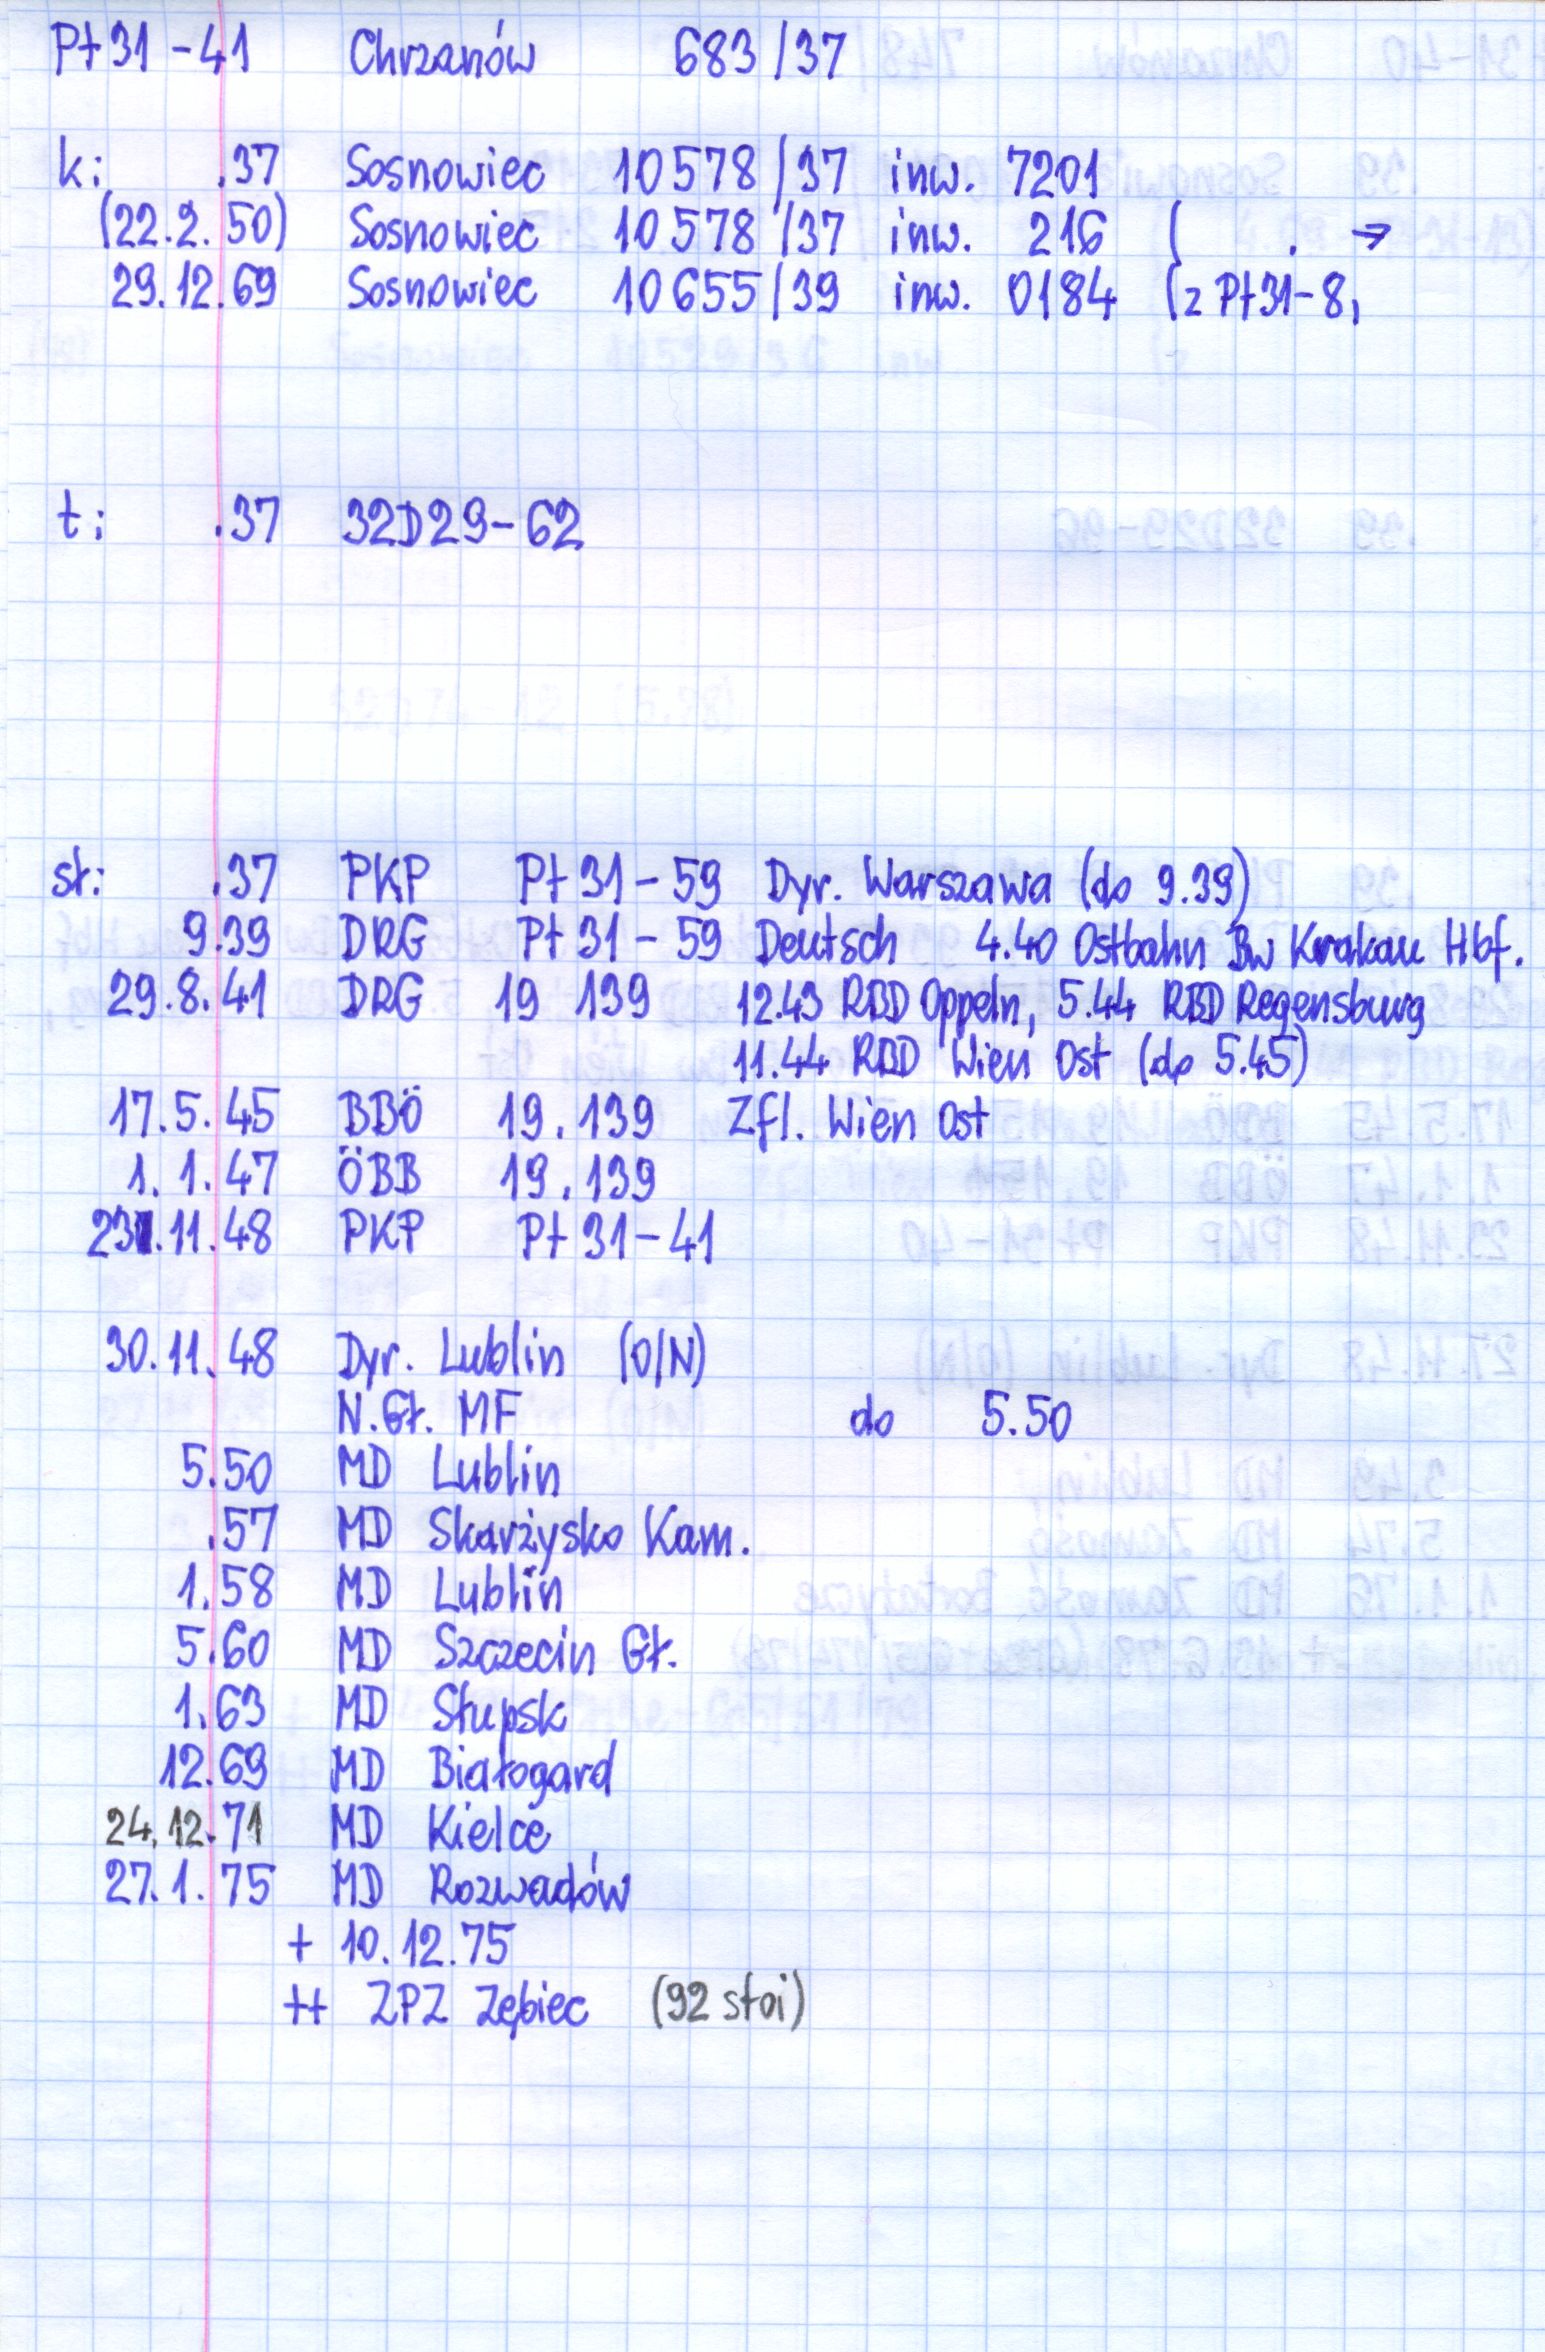 Pt31-41 Chrzanów 683/37
k: .37 Sosnowiec 10578/37 inw. 7201
(22.2.50) Sosnowiec 10578/37 inw. 216 ( . →
29.12.69 Sosnowiec 10655/39 inw. 0184 (z Pt31-8,
t: .37 32D29-62
st: .37 PKP Pt31-59 Dyr. Warszawa (do 9.39)
9.39 DRG Pt31-59 Deutsch 4.40 Ostbahn Bw Krakau Hbf.
29.8.41 DRG 19 139 12.43 RBD Oppeln, 5.44 RBD Regensburg
11.44 RBD Wien Ost (do 5.45)
17.5.45 BBÖ 19.139 Zfl. Wien Ost
1.1.47 ÖBB 19.139
23.11.48 PKP Pt31-41
30.11.48 Dyr. Lublin (O/N)
N.Gł. MF do 5.50
5.50 MD Lublin
.57 MD Skarżysko Kam.
1.58 MD Lublin
5.60 MD Szczecin Gł.
1.63 MD Słupsk
12.69 MD Białogard
24.12.71 MD Kielce
27.1.75 MD Rozwadów
+ 10.12.75
++ ZPZ Zębiec (92 stoi)